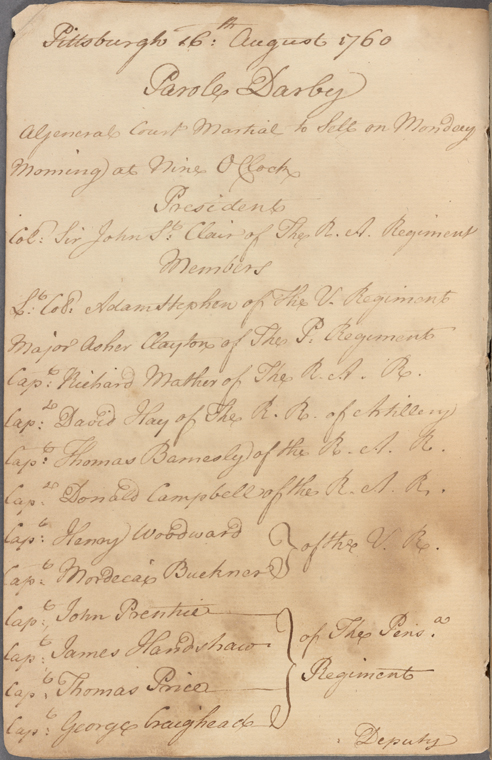 Pittsburgh 16th: August 1760
Parole Darby
A General Court Martial to Sett on Monday
Morning at Nine O Clock
President
Col: Sir John St. Clair of The R. A. Regiment
Members
Lt: Col: Adam Stephen of the V. Regiment
Major Asher Clayton of The P. Regiment
Capt: Richard Mather of The R. A. R.
Capt: David Hay of The R. R. of Artillery
Capt: Thomas Barnesly of the R. A. R.
Capt: Donald Campbell of the R. A. R.
Capt: Henry Woodward
Capt: Mordecai Buckner } of the V. R.
Capt: John Prentie
Capt: James Handshaw } of The Pens.a
Capt: Thomas Price Regiment
Capt: George Craighead
Deputy